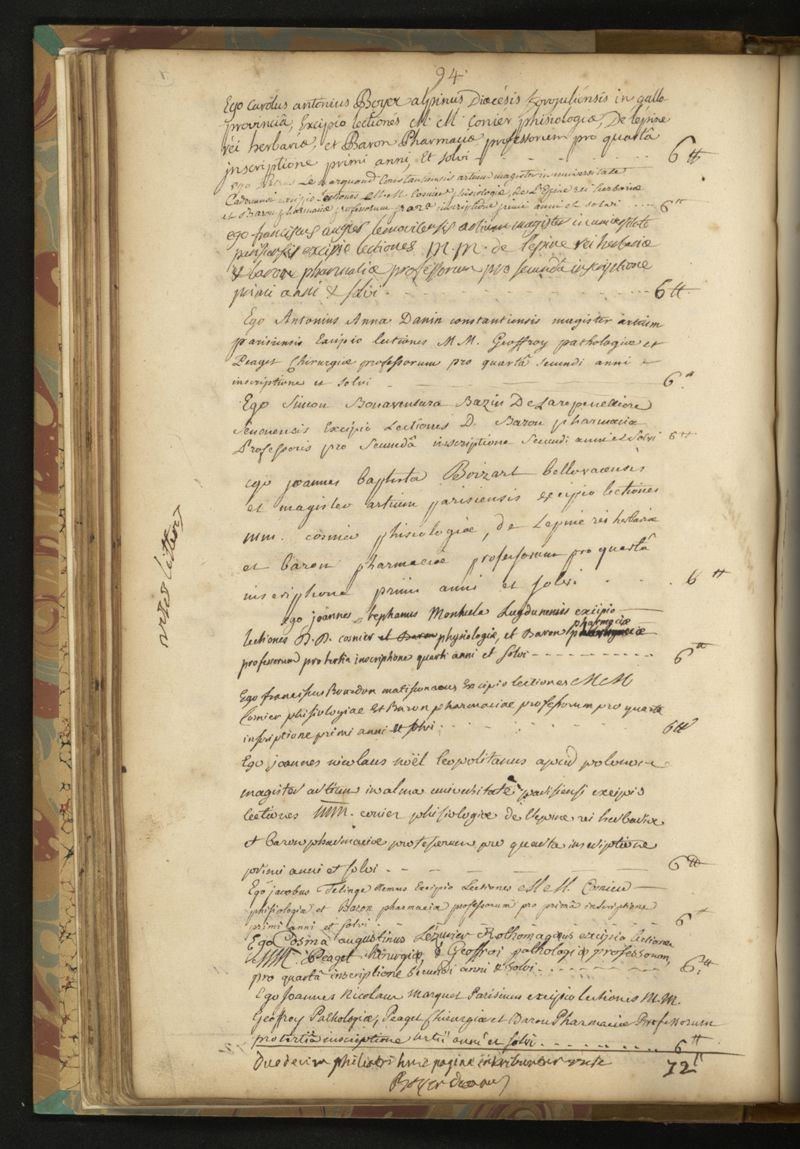 94
Ego Carolus antonius Boyer alpinus Diœcesis forojuliensis in gallo
provinciâ, Excipio lectiones M M Conier phisiologiæ, De lepine
rei herbariæ, et Baron Pharmaciæ professorum pro quartâ
inscriptione primi anni, Et solvi 6 #
ego Le marquand Constantiensis artium magister in universitate
Cadomensi excipio Lectiones M.M. Conier phisiologiæ, De L'Epine rei herbariæ
et Baron pharmaciæ professorum pro inscriptione primi anni et solvi 6 #
ego franciscus lemovicensis artium magister in universitate
parisiensi excipio lectiones M.M. de lepine rei herbariæ
& baron pharmaciæ professorum pro secunda inscriptione
primi anni & solvi 6 #
Ego Antonius Anna Danin constantiensis magister artium
parisiensis Excipio lectiones M M. Geoffroy pathologiæ et
Peaget Chirurgiæ professorum pro quartâ secundi anni
inscriptione et solvi 6 #
Ego Simon Bonaventura Bazin De
Senonensis Excipio Lectiones D. Baron pharmaciæ
Professoris pro Secundâ inscriptione Secundi anni et solvi 6 #
ego joannes baptista Boizart bellovacensis
et magister artium parisiensis excipio lectiones
mm. cosnier phisiologiæ, de Lepine rei herbariæ
et baron pharmaciæ professorum pro quartâ
inscriptione primi anni et solvi 6 #
ego joannes stephanus Montucla Lugdunensis excipio
lectiones D.D. cosnier et Baron physiologiæ, et Baron pharmaciæ
professorum pro tertia inscriptione quarti anni et solvi 6 #
Ego franciscus Bourdon matisconæus Excipio lectiones M M
Conier phisiologiae Et Baron pharmaciae professorum pro quarta
inscriptione primi anni et solvi 6 #
Ego joannes nicolaus noël leopolitanus apud polonos
magister artium in alma universitate parisiensi excipio
lectiones MM. conier phisiologiæ de l'epine rei herbariæ
et baron pharmaciæ professorum pro quarta inscriptione
primi anni et solvi 6 #
Ego jacobus Excipio Lectiones M M. Conier
phisiologiæ et Baron pharmaciæ professorum pro primâ inscriptione
primi anni et solvi 6 #
Ego Cosma augustinus Lezurier Rothomagæus excipio lectiones
MM. Peaget chirurgiæ & Geoffroi pathologiæ professorum,
pro quartâ inscriptione secundi anni & solvi 6 #
Ego Joannes Nicolaus Marquet Parisinus excipio lectiones M.M.
Geoffroy Pathologiæ, Peaget Chirurgiæ et Baron Pharmaciæ Professorum
pro tertiâ inscriptione tertii anni et solvi 6 #
Duodecim philiatri huic pagine inscribuntur 72 #